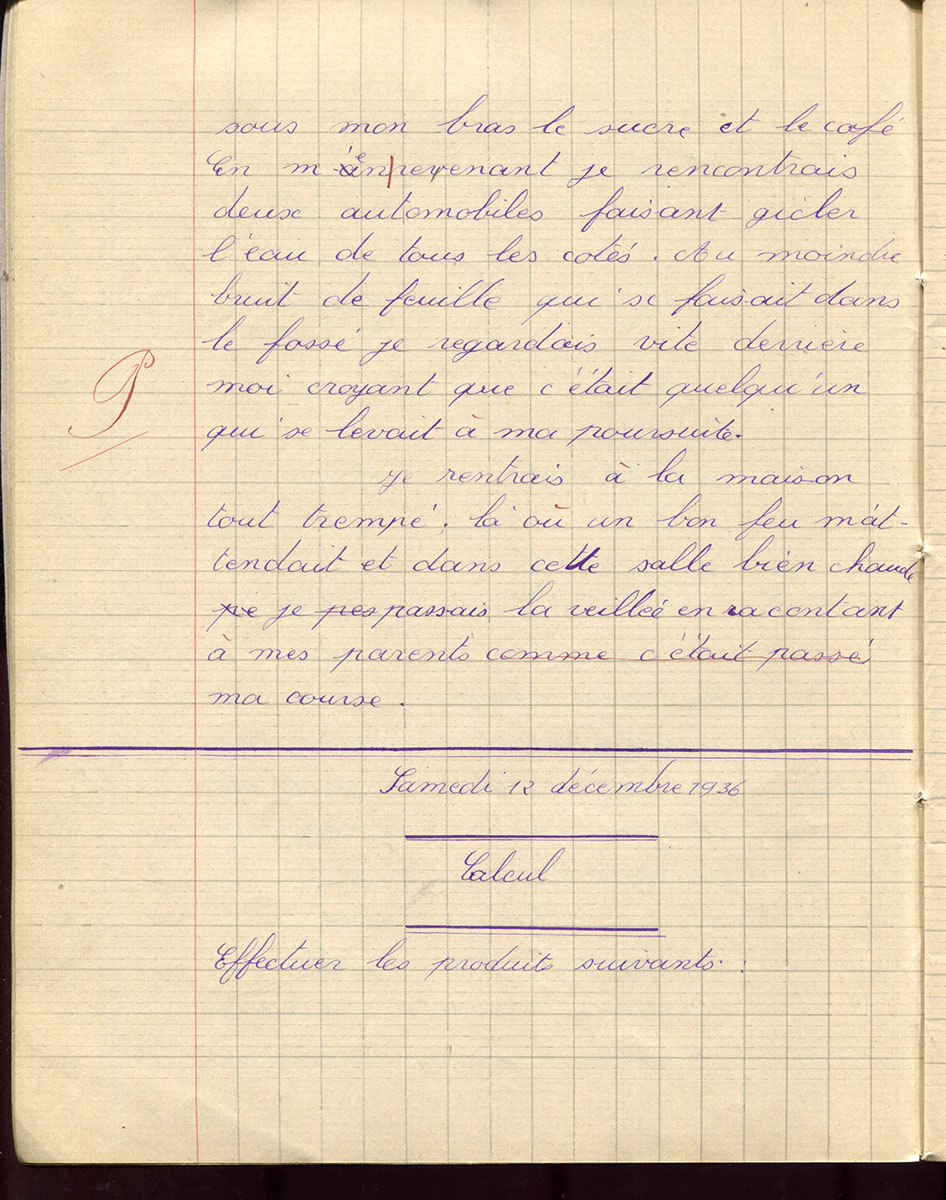 sous mon bras le sucre et le café
En m'en revenant je rencontrais
deux automobiles faisant gicler
l'eau de tous les cotés. Au moindre
bruit de feuille qui se faisait dans
le fossé je regardais vite derrière
moi croyant que c'était quelqu'un
qui se levait à ma poursuite.
Je rentrais à la maison
tout trempé. là où un bon feu m'at-
tendait et dans cette salle bien chaude
pe je pes passais la veilleé en racontant
à mes parents comme c'était passé
ma course.
Samedi 12 décembre 1936
Calcul
Effectuer les produits suivants :